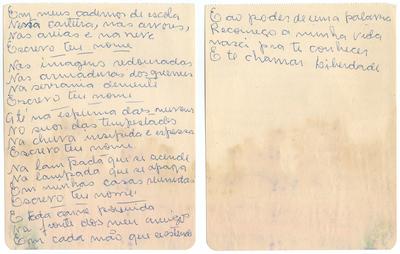 Em meus cadernos de escola
Nessa carteira, nas arvores,
Nas areias e na neve
Escrevo teu nome
Nas imagens redouradas
Na armadura dos guerreiros
Escrevo teu nome
Até na espuma das nuvens
No suor das tempestades
Na chuva insipida e espessa
Escrevo teu nome
Na lampada que se acende
Na lampada que se apaga
Em minhas casas reunidas
Escrevo teu nome
E toda carne possuida
Na fronte dos meus amigos
Em cada mão que se estende
E ao poder de uma palavra
Recomeço a minha vida
nasci pra te conhecer
E te chamar Liberdade